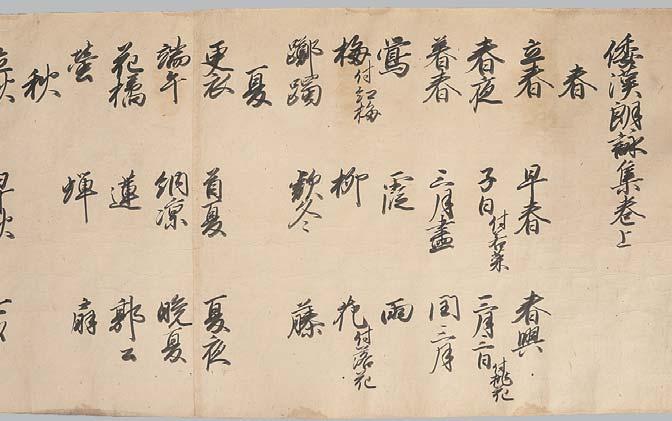 倭漢朗詠集巻上
春
立春 早春 春興
春夜 子日付若菜 三月三日付桃花
暮春 三月盡 閏三月
鶯 霞 雨
梅付紅梅 柳 花付落花
躑躅 款冬 藤
夏
更衣 首夏 夏夜
端午 納凉 晩夏
花橘 蓮 郭公
螢 蟬 扇
秋
立秋 早秋